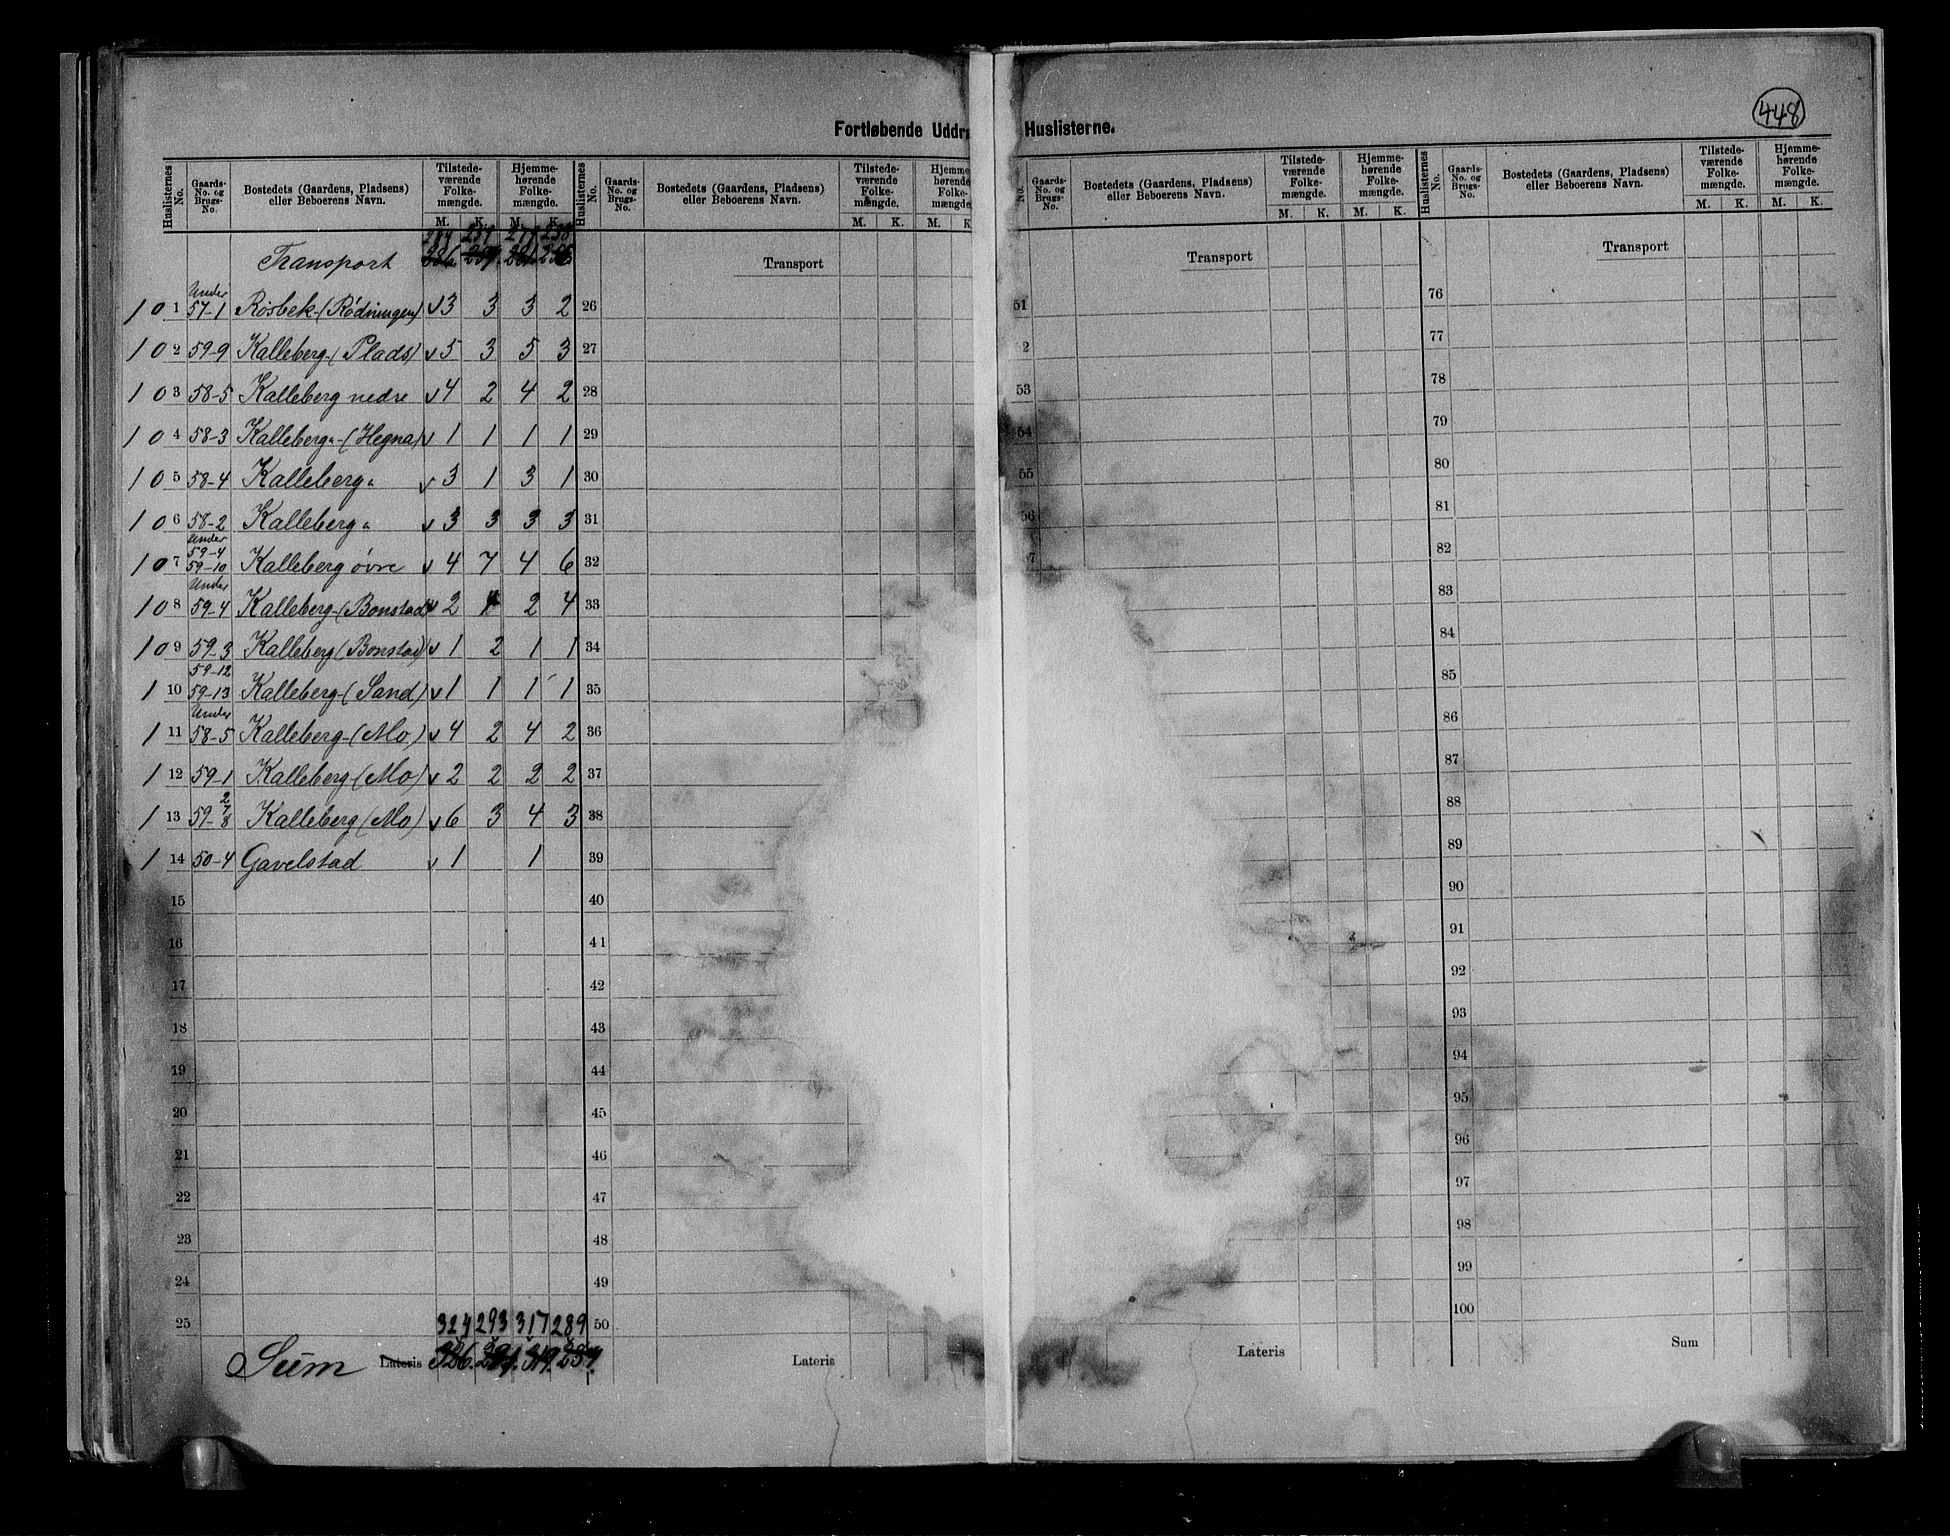 448
Fortløbende Uddr Huslisterne.
Huslisternes No. Gaards-No. og Brugs-No. Bostedets (Gaardens, Pladsens) eller Beboerens Navn. Tilstede-værende Folke-mængde. M. K. Hjemme-hørende Folke-mængde. M. K.
Huslisternes No. Gaards-No. og Brugs-No. Bostedets (Gaardens, Pladsens) eller Beboerens Navn. Tilstede-værende Folke-mængde. M. K. Hjemme-hørende Folke-mængde. M. K.
No. Gaards-No. og Brugs-No. Bostedets (Gaardens, Pladsens) eller Beboerens Navn. Tilstede-værende Folke-mængde. M. K. Hjemme-hørende Folke-mængde. M. K.
Huslisternes No. Gaards-No. og Brugs-No. Bostedets (Gaardens, Pladsens) eller Beboerens Navn. Tilstede-værende Folke-mængde. M. K. Hjemme-hørende Folke-mængde. M. K.
Transport
Under
101 57-1 Rösbek-(Rödningen) 3 3 3 2
102 59-9 Kalleberg-(Plads) 5 3 5 3
103 58-5 Kalleberg nedre 4 2 4 2
104 58-3 Kalleberg "-(Hegna) 1 1 1 1
105 58-4 Kalleberg " 3 1 3 1
106 58-2 Kalleberg " 3 3 3 3
Under
59-4
107 59-10 Kalleberg øvre 4 7 4 6
Under
108 59-4 Kalleberg-(Bonstad) 2 4 2 4
109 59-3 Kalleberg (Bonstad) 1 2 1 1
59-12
110 59-13 Kalleberg-(Sand) 1 1 1 1
Under
111 58-5 Kalleberg-(Mo) 4 2 4 2
112 59-1 Kalleberg-(Mo) 2 2 2 2
2
7
113 59-8 Kalleberg (Mo) 6 3 4 3
114 50-4 Gavelstad 1 1
15
16
17
18
19
20
21
22
23
24
25 324 293 317 289
Sum Lateris
Transport
26
27
28
29
30
31
32
33
34
35
36
37
38
39
40
41
42
43
44
45
46
47
48
49
50
Lateris
Transport
51
2
53
54
55
56
7
Lateris
Transport
76
77
78
79
80
81
82
83
84
85
86
87
88
89
90
91
92
93
94
95
96
97
98
99
100
Sum